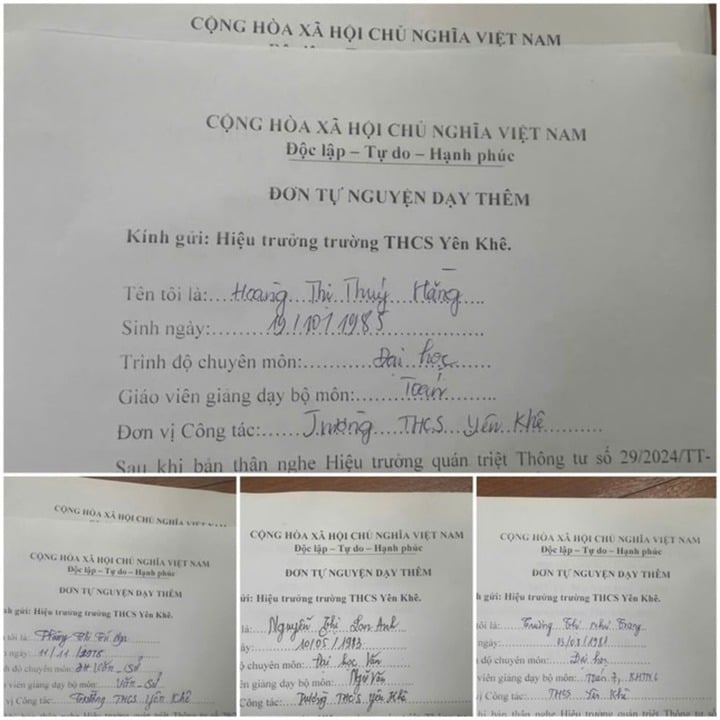 CỘNG HÒA XÃ HỘI CHỦ NGHĨA VIỆT NAM
CỘNG HÒA XÃ HỘI CHỦ NGHĨA VIỆT NAM
Độc lập – Tự do – Hạnh phúc
ĐƠN TỰ NGUYỆN DẠY THÊM
Kính gửi: Hiệu trưởng trường THCS Yên Khê.
Tên tôi là: Hoàng Thị Thuý Hằng
Sinh ngày: 19/10/1985
Trình độ chuyên môn: Đại học
Giáo viên giảng dạy bộ môn: Toán
Đơn vị Công tác: Trường THCS Yên Khê
Sau khi bản thân nghe Hiệu trưởng quán triệt Thông tư số 29/2024/TT-
CỘNG HÒA XÃ HỘI CHỦ NGHĨA VIỆT NAM
CỘNG HÒA XÃ HỘI CHỦ NGHĨA VIỆT NAM
Độc lập – Tự do – Hạnh phúc
ĐƠN TỰ NGUYỆN DẠY THÊM
gửi: Hiệu trưởng trường THCS Yên Khê.
tôi là: Phùng Thị
ngày: 11/11/1978
độ chuyên môn: ĐH Văn - Sử
viên giảng dạy bộ môn: Văn - Sử
vị Công tác: Trường THCS Yên Khê
CỘNG HÒA XÃ HỘI CHỦ NGHĨA VIỆT NAM
Độc lập – Tự do – Hạnh phúc
ĐƠN TỰ NGUYỆN DẠY THÊM
Hiệu trưởng trường THCS Yên Khê.
là: Nguyễn Thị Lan Anh
10/05/1983
chuyên môn: Đại học Văn
giảng dạy bộ môn: Ngữ Văn
Công tác: Trường THCS Yên Khê
CỘNG HÒA XÃ HỘI CHỦ NGHĨA VIỆT NAM
Độc lập – Tự do – Hạnh phúc
ĐƠN TỰ NGUYỆN DẠY THÊM
gửi: Hiệu trưởng trường THCS Yên Khê.
tôi là: Trương Thị Như Trang
ngày:
độ chuyên môn: Đại học
viên giảng dạy bộ môn: Toán
vị Công tác: THCS Yên Khê